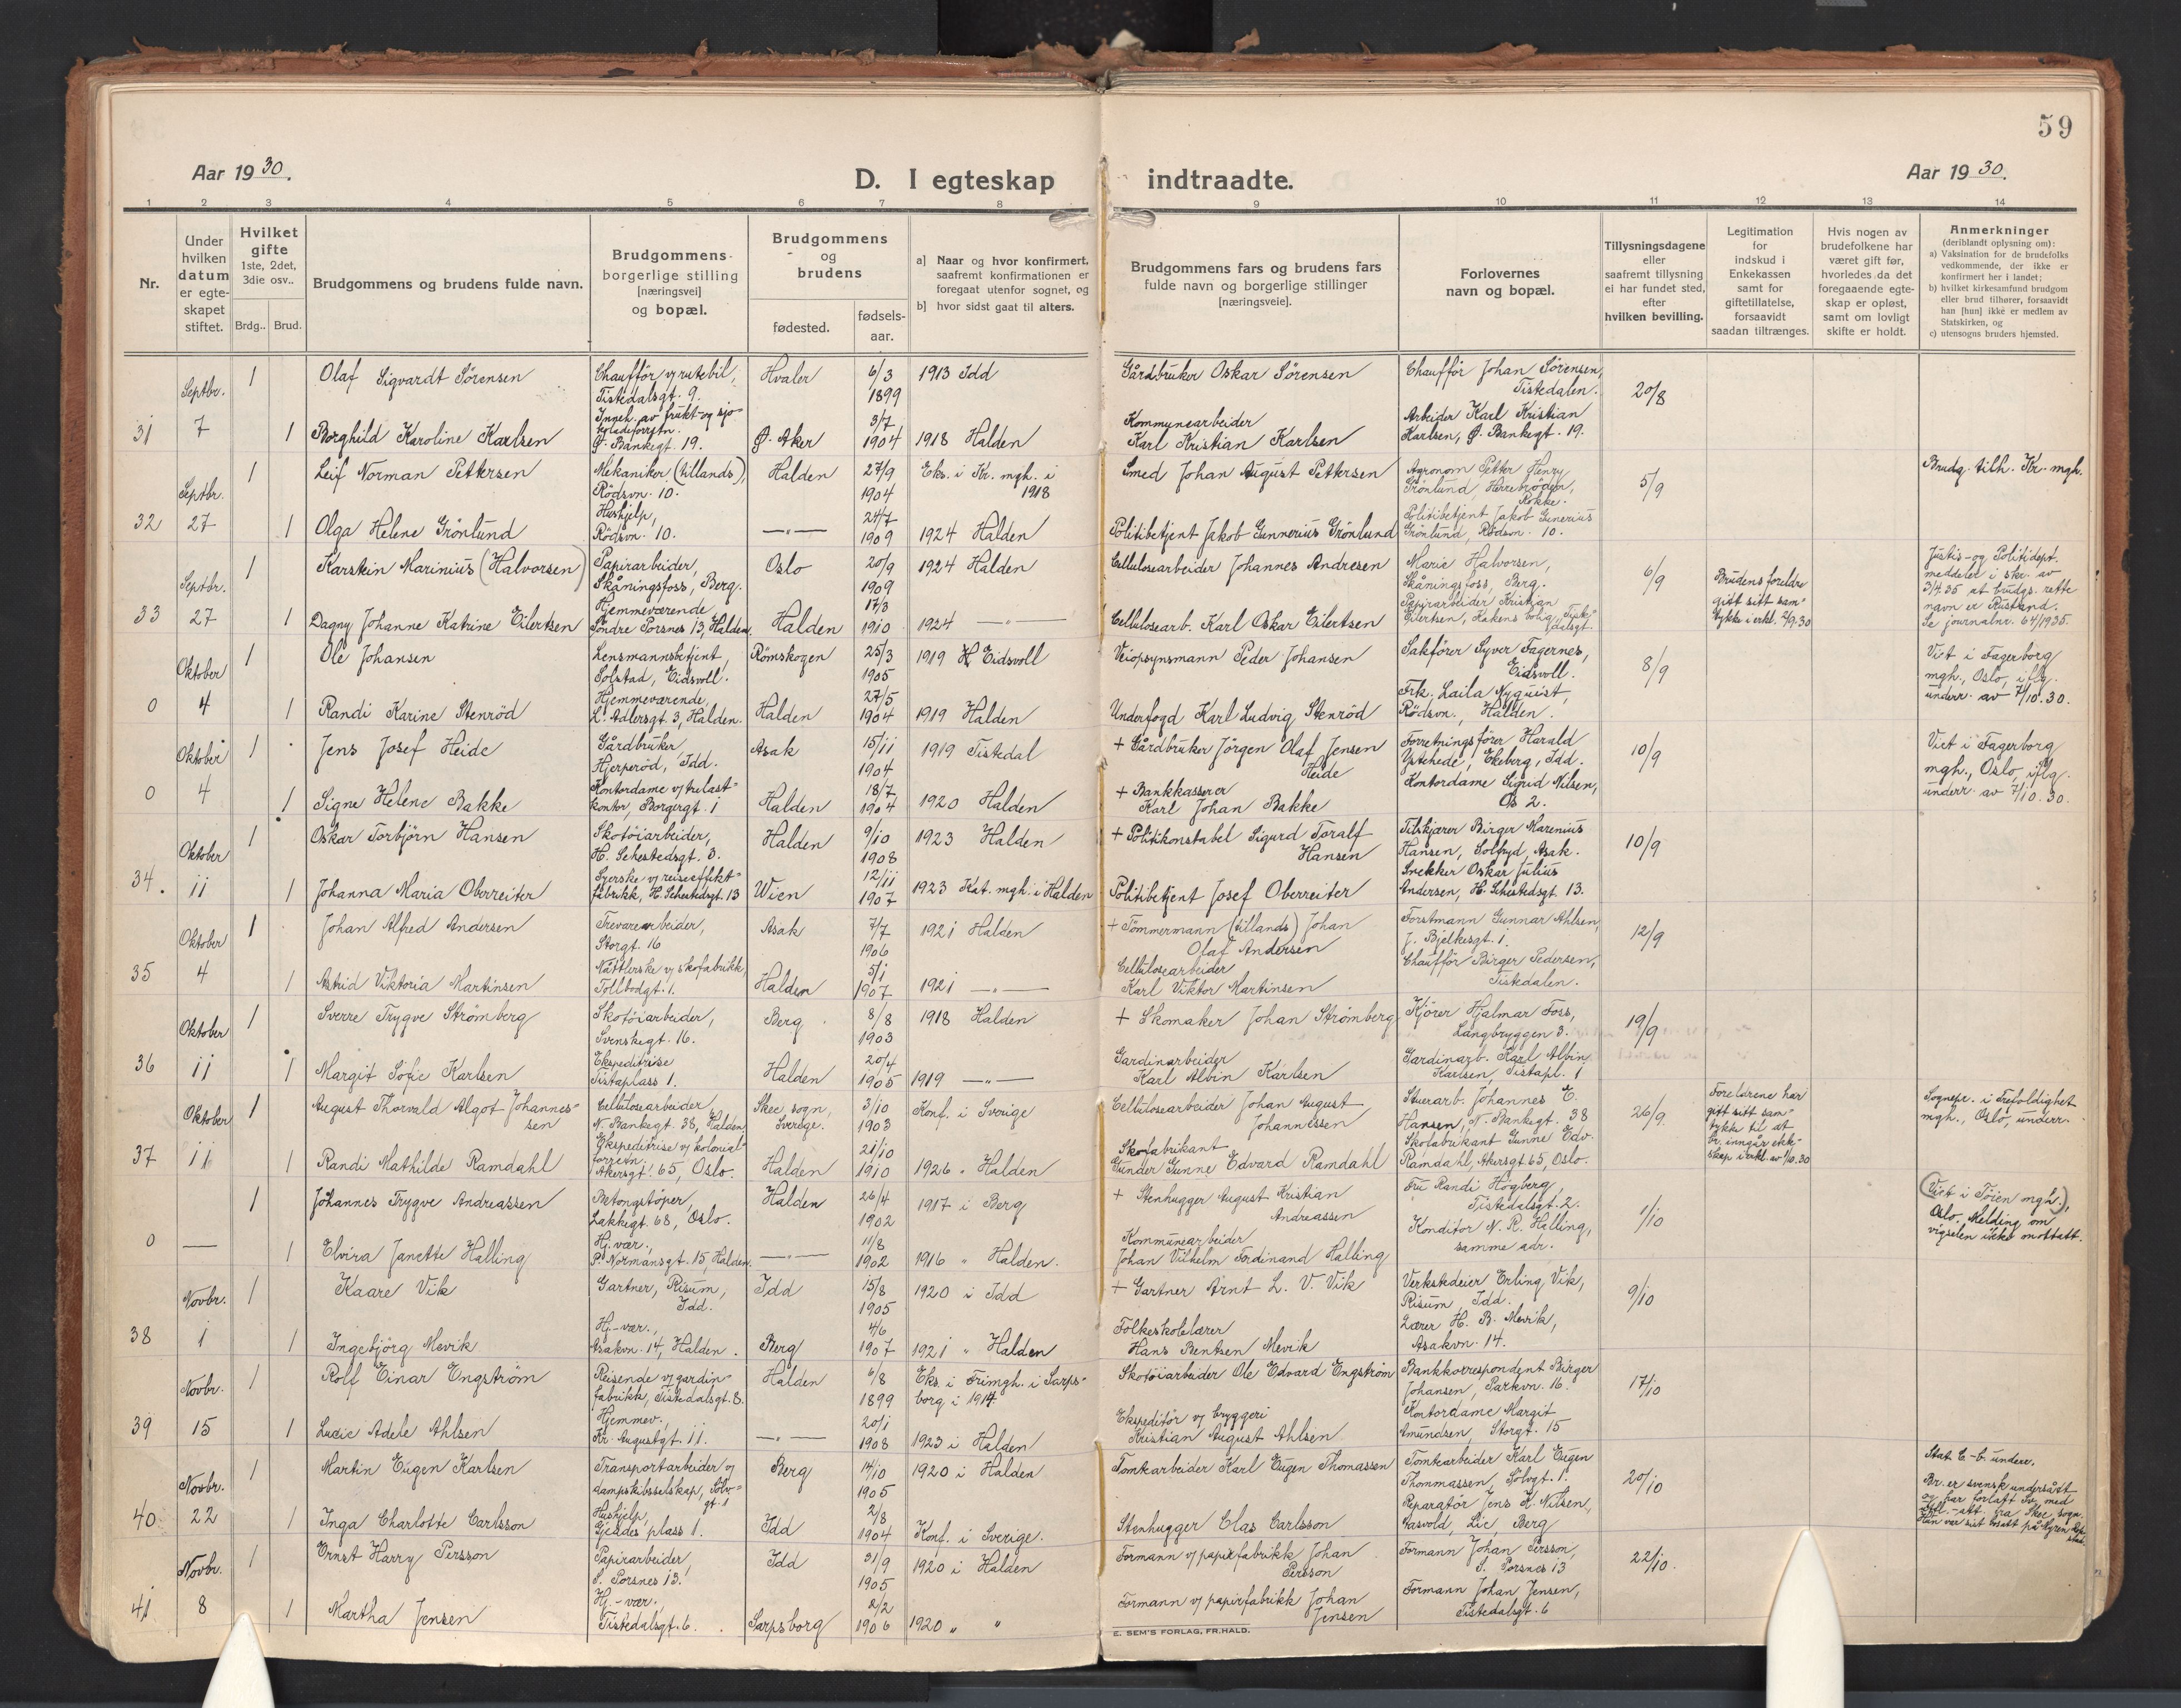 59
Aar 1930.
D. I egteskap indtraadte.
Aar 1930.
1 2 3 4 5 6 7 8 9 10 11 12 13 14
Nr.
Under hvilken datum er egteskapet stiftet.
Hvilket gifte 1ste, 2det, 3die osv..
Brdg.. Brud.
Brudgommens og brudens fulde navn.
Brudgommens borgerlige stilling [næringsvei] og bopæl.
Brudgommens og brudens
fødested.
fødsels-aar.
a] Naar og hvor konfirmert, saafremt konfirmationen er foregaat utenfor sognet, og
b] hvor sidst gaat til alters.
Brudgommens fars og brudens fars fulde navn og borgerlige stillinger [næringsveie].
Forlovernes navn og bopæl.
Tillysningsdagene eller saafremt tillysning ei har fundet sted, efter hvilken bevilling.
Legitimation for indskud i Enkekassen samt for giftetillatelse, forsaavidt saadan tiltrænges.
Hvis nogen av brudefolkene har været gift før, hvorledes da det foregaaende egteskap er opløst, samt om lovligt skifte er holdt.
Anmerkninger (deriblandt oplysning om):
a) Vaksination for de brudefolks vedkommende, der ikke er konfirmert her i landet;
b) hvilket kirkesamfund brudgom eller brud tilhører, forsaavidt han [hun] ikke er medlem av Statskirken, og
c) utensogns bruders hjemsted.
31 Septbr. 7
1 Olaf Sigvardt Sörensen Chaufför v/ rutebil, Tistedalsgt. 9. Hvaler 6/3 1899 1913 Idd Gårdbruker Oskar Sörensen Chauffør Johan Sörensen, Tistedalen. 20/8
1 Borghild Karoline Karlsen Inneh. av frukt- og sjokoladeforretn. Ø. Bankegt. 19. Ø. Aker 3/7 1904 1918 Halden Kommunearbeider Karl Kristian Karlsen Arbeider Karl Kristian Karlsen, Ø. Bankegt. 19.
32 Septbr. 27
1 Leif Norman Pettersen Mekaniker (tillands), Rödsvn. 10. Halden 27/9 1904 Eks. i Kr. mgh. i 1918 Smed Johan August Pettersen Agronom Petter Henry Grönlund, Herrebröden, Rokke. 5/9 Brudg. tilh. Kr. mgh.
1 Olga Helene Grönlund Hushjelp, Rödsvn. 10. —"— 24/7 1909 1924 Halden Politibetjent Jakob Gunnerius Grönlund Politibetjent Jakob Gunerius Grönlund, Rödsvn. 10.
33 Septbr. 27
1 Karstein Marinius (Halvorsen) Papirarbeider, Skåningsfoss, Berg. Oslo 20/9 1909 1924 Halden Cellulosearbeider Johannes Andresen Marie Halvorsen, Skåningsfoss, Berg. 6/9 Brudens foreldre gitt sitt samtykke i erkl. 2/9.30 Justis- og Politidept. meddeler i skr. av 3/4 35 at brudgs. rette navn er Rustand. Se journalnr. 64/1935.
1 Dagny Johanne Katrine Eilertsen Hjemmeværende Söndre Porsnes 13, Halden. Halden 17/3 1910 1924 —"— Cellulosearb. Karl Oskar Eilertsen Papirarbeider Kristian Eilertsen, Håkens bolig, Tistedalsgt.
0 Oktober 4
1 Ole Johansen Lensmannsbetjent, Solstad, Eidsvoll. Römskogen 25/3 1905 1919 Eidsvoll Veiopsynsmann Peder Johansen Sakförer Syver Fagernes, Eidsvoll. 8/9 Viet i Fagerborg mgh., Oslo, iflg. underr. av 7/10.30.
1 Randi Karine Stenröd Hjemmeværende, L. Adlersgt. 3, Halden. Halden 27/5 1904 1919 Halden Underfogd Karl Ludvig Stenröd Frk. Laila Nyquist, Rödsvn., Halden.
0 Oktober 4
1 Jens Josef Heide Gårdbruker Hjerperöd, Idd. Asak 15/11 1904 1919 Tistedal + Gårdbruker Jörgen Olaf Jensen Heide Forretningsförer Harald Ystehede, Ekeberg, Idd. 10/9 Viet i Fagerborg mgh., Oslo, iflg. underr. av 7/10.30.
1 Signe Helene Bakke Kontordame v/ trelastkontor, Borgergt. 1 Halden 18/7 1904 1920 Halden + Bankkasserer Karl Johan Bakke Kontordame Sigrid Nilsen, Os 2.
34. Oktober 11
1 Oskar Torbjörn Hansen Skotöiarbeider, H. Sehestedsgt. 3. Halden 9/10 1908 1923 Halden + Politikonstabel Sigurd Toralf Hansen Tilskjærer Birger Marenius Hansen, Solfryd, Asak. 10/9
1 Johanna Maria Oberreiter Syerske v/ reiseeffektfabrikk, H. Sehestedsgt. 13 Wien 12/11 1907 1923 Kat. mgh. i Halden Politibetjent Josef Oberreiter Snekker Oskar Julius Andersen, H. Sehestedsgt. 13.
35 Oktober 4
1 Johan Alfred Andersen Trevarearbeider, Storgt. 16 Asak 7/7 1906 1921 Halden + Tömmermann (tillands) Johan Olaf Andersen Forstmann Gunnar Ahlsen, J. Bjelkesgt. 1. 12/9
1 Astrid Viktoria Martinsen Nåtlerske v/ skofabrikk, Tollbodgt. 1. Halden 5/1 1907 1921 —"— Cellulosearbeider Karl Viktor Martinsen Chauffør Birger Pedersen, Tistedalen.
36 Oktober 11
1 Sverre Trygve Strömberg Skotöiarbeider, Svenskegt. 16. Berg 8/8 1903 1918 Halden + Skomaker Johan Strömberg Kjörer Hjalmar Fors, Langbryggen 3. 19/9
1 Margit Sofie Karlsen Ekspeditrise Tistaplass 1. Halden 20/4 1905 1919 —"— Gardinarbeider Karl Albin Karlsen Gardinarb. Karl Albin Karlsen, Tistapl. 1
37 Oktober 11
1 August Thorvald Algot Johannessen Cellulosearbeider, N. Bankegt. 38, Halden Skee sogn, Sverige. 3/10 1903 Konf. i Sverige Cellulosearbeider Johan August Johannessen Stuerarb. Johannes E. Hansen, N. Bankegt. 38 26/9. Foreldrene har gitt sitt samtykke til at br. inngår ekteskap i erkl. av 1/10.30 Sognepr. i Trefoldighet mgh., Oslo, underr.
1 Randi Mathilde Ramdahl Ekspeditrise v/ kolonialforretn. Akersgt. 65, Oslo. Halden 21/10 1910 1926 Halden Skofabrikant Gunder Gunne Edvard Ramdahl Skofabrikant Gunne Edv. Ramdahl, Akersgt. 65, Oslo.
0 —
1 Johannes Trygve Andreassen Betongstöper, Lakkegt. 68, Oslo. Halden 26/4 1902 1917 i Berg + Stenhugger August Kristian Andreassen Fru Randi Högberg, Tistedalsgt. 2. 1/10 (Viet i Töien mgh.), Oslo. Melding om vigselen ikke mottatt.
1 Elvira Janette Halling Hj. vær., P. Normansgt. 15, Halden. —"— 11/8 1902 1916 " Halden. Kommunearbeider Johan Vilhelm Ferdinand Halling Konditor N. R. Halling, samme adr.
38 Novbr. 1
1 Kaare Vik Gartner, Risum, Idd. Idd 15/8 1905 1920 i Idd + Gartner Arnt L. V. Vik Verkstedeier Erling Vik, Risum Idd. 9/10
1 Ingebjörg Mevik Hj.-vær., Asakvn. 14, Halden. Berg 4/6 1907 1921 " Halden Folkeskolelærer Hans Bentsen Mevik Lærer H. B. Mevik, Asakvn. 14.
39 Novbr. 15
1 Rolf Einar Engström Reisende v/ gardinfabrikk, Tistedalsgt. 8. Halden 6/8 1899 Eks. i Frimgh. i Sarpsborg i 1914. Skotöiarbeider Ole Edvard Engström Bankkorrespondent Birger Johansen, Parkvn. 16. 17/10
1 Lucie Adele Ahlsen Hjemmev., Kr. Augustgt. 11. —"— 20/1 1908 1923 i Halden Ekspeditör v/ bryggeri Kristian August Ahlsen Kontordame Margit Amundsen, Storgt. 15
40 Novbr. 22
1 Martin Eugen Karlsen Transportarbeider v/ dampskibsselskap, Sölvgt. 1 Berg 14/10 1905 1920 i Halden Tomtearbeider Karl Eugen Thomassen Tomtearbeider Karl Eugen Thommassen, Sölvgt. 1. 20/10 Stat. C-b. underr. Br. er svensk undersått og har forlatt Sv. med fra Skee sogn.
1 Inga Charlotte Carlsson Hushjelp, Gjeddes plass 1. Idd 2/8 1904 Konf. i Sverige. Stenhugger Clas Carlsson Reparatör Jens K. Nilsen, Lie, Berg
41 Novbr. 8
1 Ernst Harry Persson Papirarbeider, S. Porsnes 13. Idd 31/9 1905 1920 i Halden Formann v/ papirfabrikk Johan Persson Formann Johan Persson, S. Porsnes 13 22/10.
1 Martha Jensen Hj.-vær., Tistedalsgt. 6. Sarpsborg 2/2 1906 1920 " " Formann v/ papirfabrikk Johan Jensen Formann Johan Jensen, Tistedalsgt. 6
E. SEM'S FORLAG, FR.HALD.